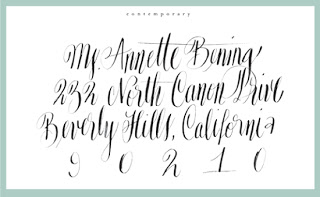 contemporary
Ms. Annette Bening
232 North Canon Drive
Beverly Hills, California
9 0 2 1 0